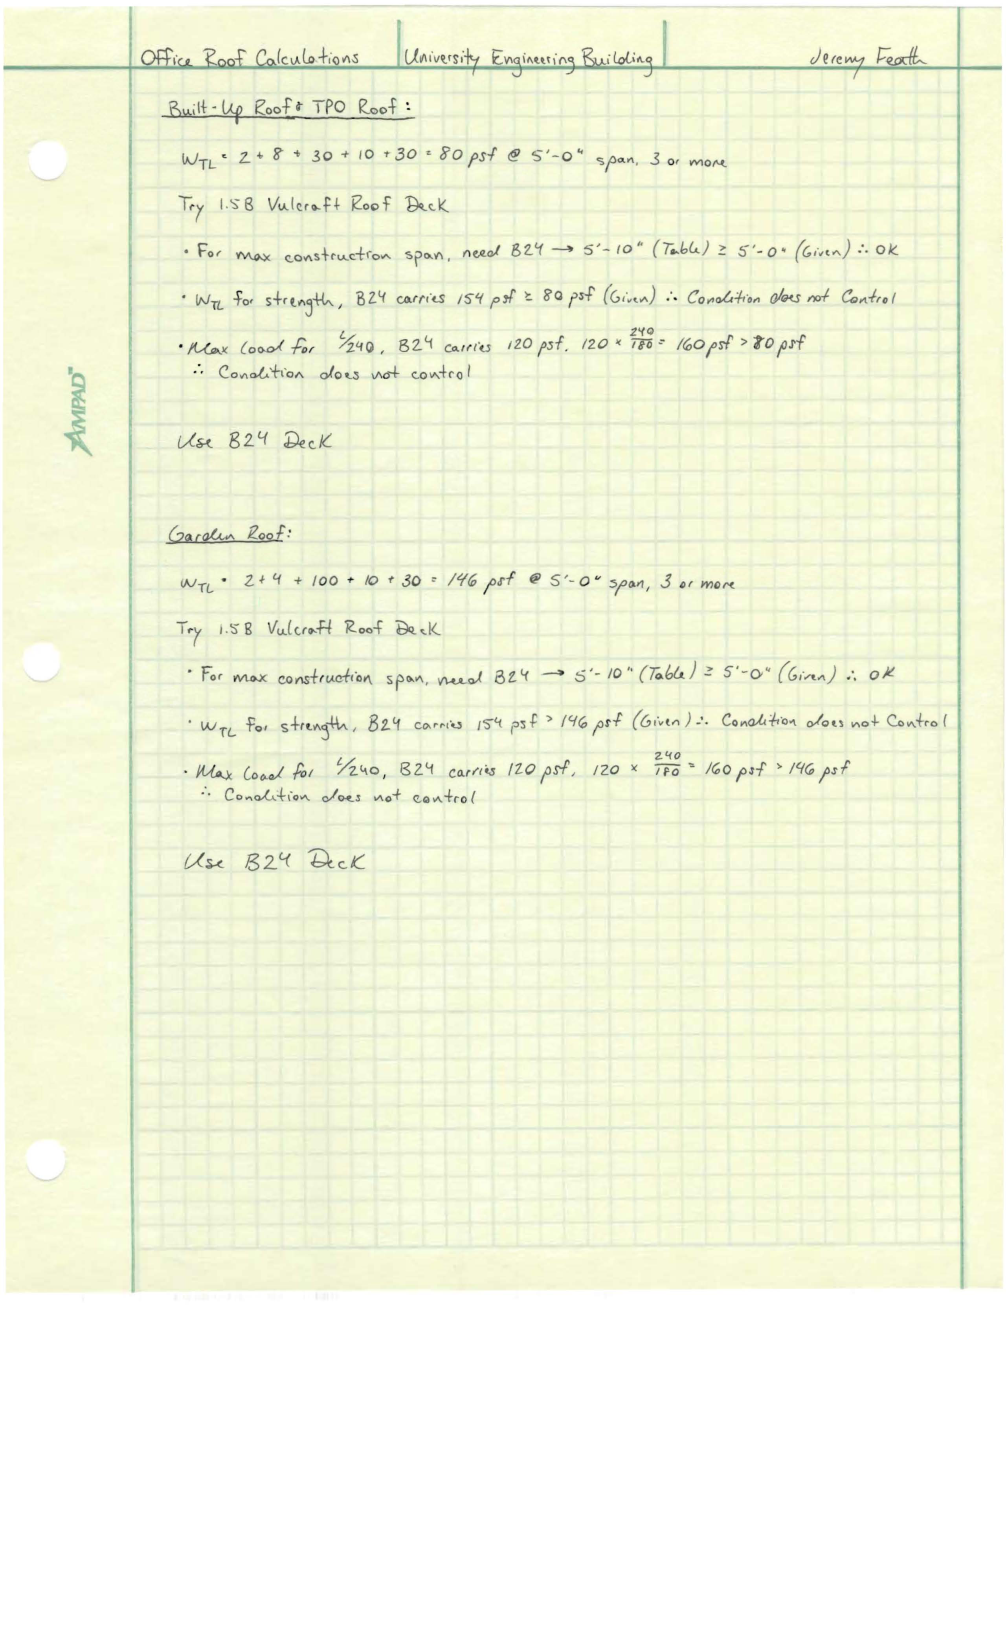 Office Roof Calculations University Engineering Building Jeremy Feath
Built-Up Roof & TPO Roof:
W_TL = 2 + 8 + 30 + 10 + 30 = 80 psf @ 5'-0" span, 3 or more
Try 1.5B Vulcraft Roof Deck
• For max construction span, need B24 → 5'-10" (Table) ≥ 5'-0" (Given) ∴ OK
• W_TL for strength, B24 carries 154 psf ≥ 80 psf (Given) ∴ Condition does not Control
• Max load for L/240, B24 carries 120 psf. 120 × 240/180 = 160 psf > 80 psf
∴ Condition does not control
Use B24 Deck
AMPAD™
Garden Roof:
W_TL = 2 + 4 + 100 + 10 + 30 = 146 psf @ 5'-0" span, 3 or more
Try 1.5B Vulcraft Roof Deck
• For max construction span, need B24 → 5'-10" (Table) ≥ 5'-0" (Given) ∴ OK
• W_TL for strength, B24 carries 154 psf > 146 psf (Given) ∴ Condition does not Control
• Max load for L/240, B24 carries 120 psf, 120 × 240/180 = 160 psf > 146 psf
∴ Condition does not control
Use B24 Deck